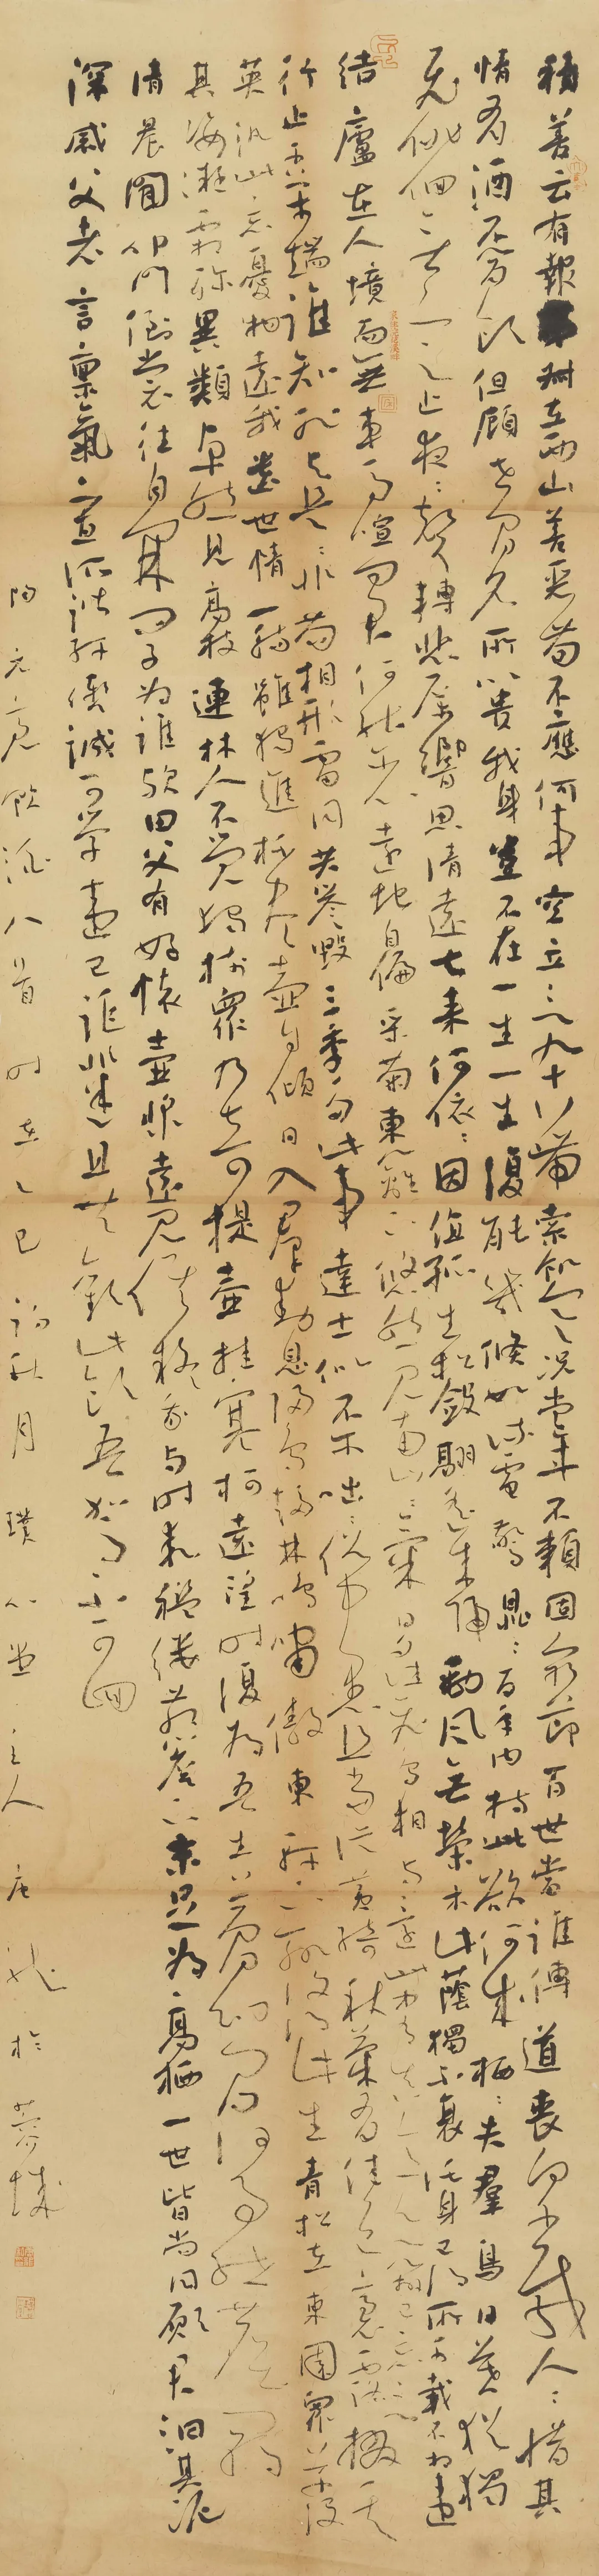 積善云有報夷叔在西山善惡苟不應何事空立言九十行帶索飢寒況當年不賴固窮節百世當誰傳道喪向千載人人惜其
情有酒不肯飲但顧世間名所以貴我身豈不在一生一生復能幾倏如流電驚鼎鼎百年內持此欲何成栖栖失群鳥日暮猶獨
飛徘徊無定止夜夜聲轉悲厲響思清遠去來何依依因值孤生松斂翮遙來歸勁風無榮木此蔭獨不衰託身已得所千載不相違
結廬在人境而無車馬喧問君何能爾心遠地自偏采菊東籬下悠然見南山山氣日夕佳飛鳥相與還此中有真意欲辨已忘言
行止千萬端誰知非與是是非苟相形雷同共譽毀三季多此事達士似不爾咄咄俗中愚且當從黃綺秋菊有佳色裛露掇其
英汎此忘憂物遠我遺世情一觴雖獨進杯盡壺自傾日入群動息歸鳥趨林鳴嘯傲東軒下聊復得此生青松在東園眾草沒
其姿凝霜殄異類卓然見高枝連林人不覺獨樹眾乃奇提壺挂寒柯遠望時復為吾生夢幻間何事紲塵羈
清晨聞叩門倒裳往自開問子為誰歟田父有好懷壺漿遠見候疑我與時乖襤縷茅簷下未足為高栖一世皆尚同願君汩其泥
深感父老言稟氣寡所諧紆轡誠可學違己詎非迷且共歡此飲吾駕不可回
陶元亮飲酒八首時在乙巳初秋月璞心堂主人庄 於蓉城